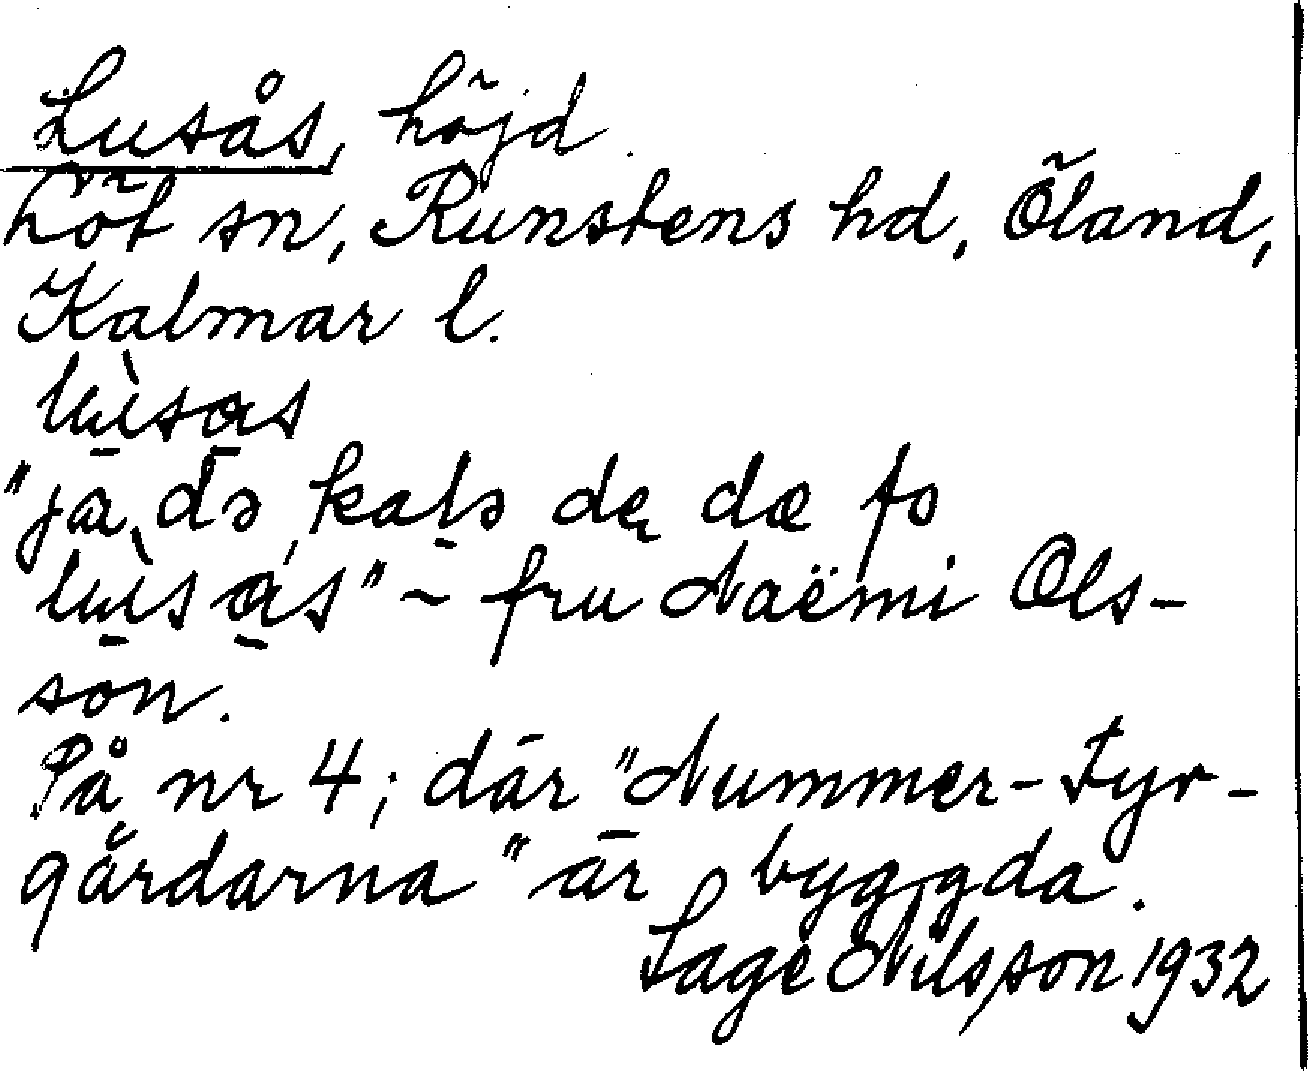 Lusås, höjd.
Löt sn, Runstens hd, Öland,
Kalmar l.
lù̱sa̱s
"ja, də kalə dę dæ fo
lù̱sa̱s" – fru Naëmi Ols-
son.
På nr 4; där "Nummer-Fyr-
gårdarna" är byggda.
Sage Nilsson 1932